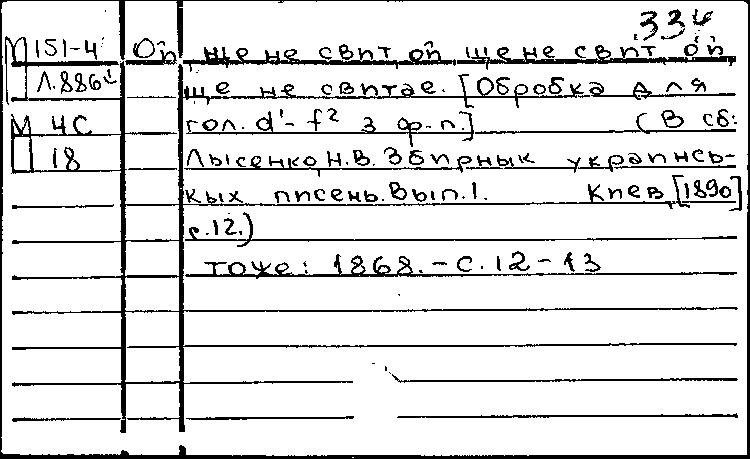 334
М 151-4 Ой ще не свит, ой ще не свит, ой,
Л.886 ще не свитае. [Обробка для
М 4С гол. d¹- f² з ф-п.] (В сб:
18 Лысенко, Н.В. Збирнык украинсь-
кых писень. Вып.1. Киев, [1890]
с.12.)
тоже: 1868.-с.12-13